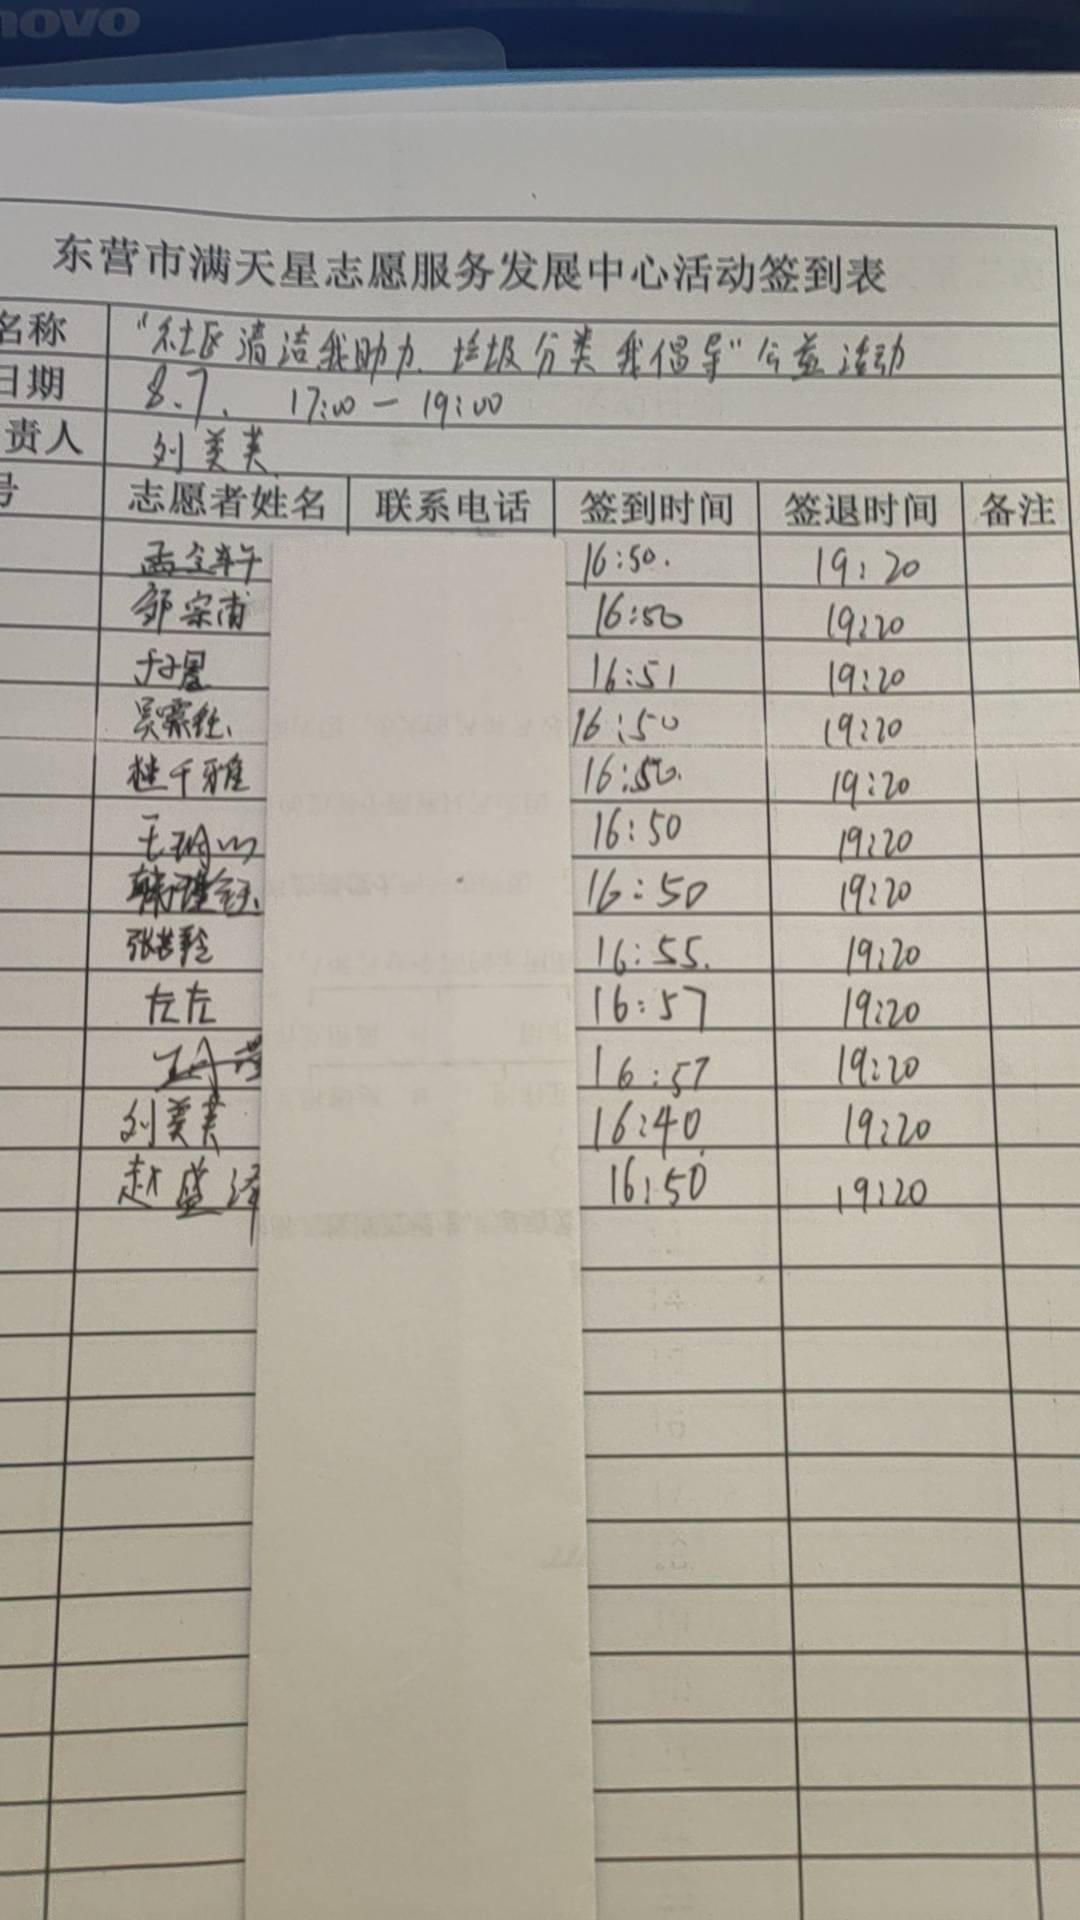 novo
东营市满天星志愿服务发展中心活动签到表
名称 "社区清洁我助力、垃圾分类我倡导"公益活动
日期 8.7. 17:00-19:00
责人 刘美芙
号 志愿者姓名 联系电话 签到时间 签退时间 备注
16:50. 19:20
邹宗甫 16:50 19:20
16:51 19:20
16:50 19:20
千雅 16:50. 19:20
王 16:50 19:20
韩 16:50 19:20
张 16:55. 19:20
左左 16:57 19:20
16:57 19:20
刘美芙 16:40 19:20
赵盛泽 16:50 19:20